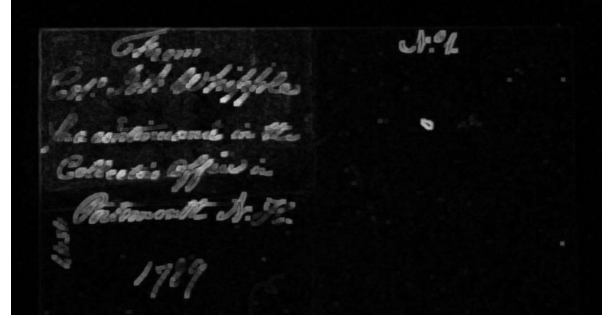 From
Col.º Jos. Whipple
his continuance in the
Collectors Office in
Portsmouth N. H.
1789
Nº 1